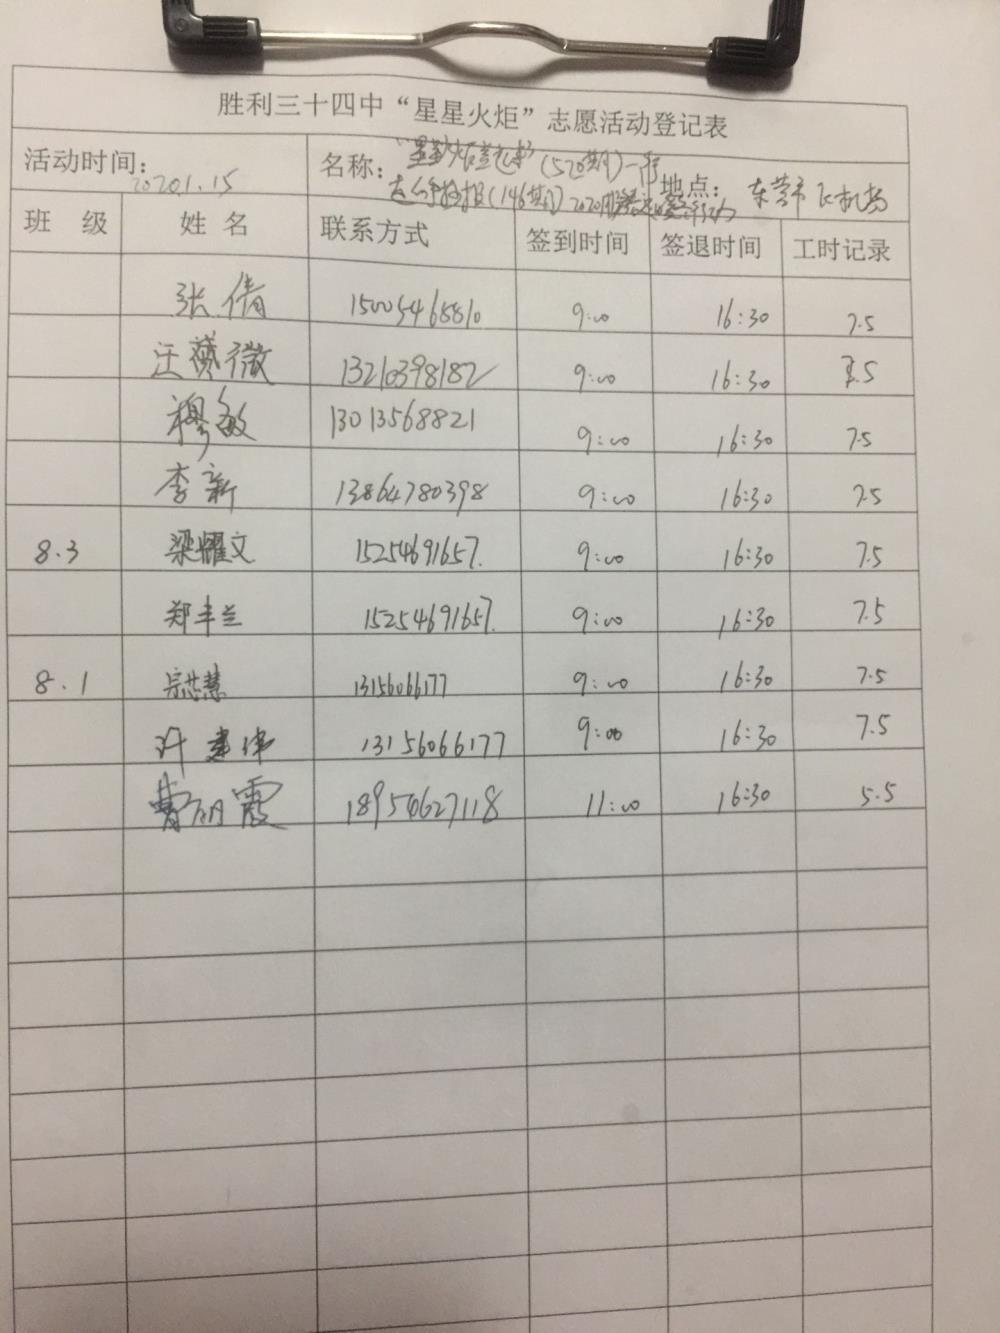 胜利三十四中“星星火炬”志愿活动登记表
活动时间： 2020.1.15 名称： (520期)一 (146期) 2020 地点： 东营市飞机场
班 级 姓 名 联系方式 签到时间 签退时间 工时记录
张倩 15005465810 9:00 16:30 7.5
汪薇 13210398182 9:00 16:30 7.5
穆敏 13013568821 9:00 16:30 7.5
李新 13864780398 9:00 16:30 7.5
8.3 梁耀文 15254691657. 9:00 16:30 7.5
郑丰兰 15254691657. 9:00 16:30 7.5
8.1 慧 13156066177 9:00 16:30 7.5
许建伟 13156066177 9:00 16:30 7.5
曹丽霞 18954627118 11:00 16:30 5.5